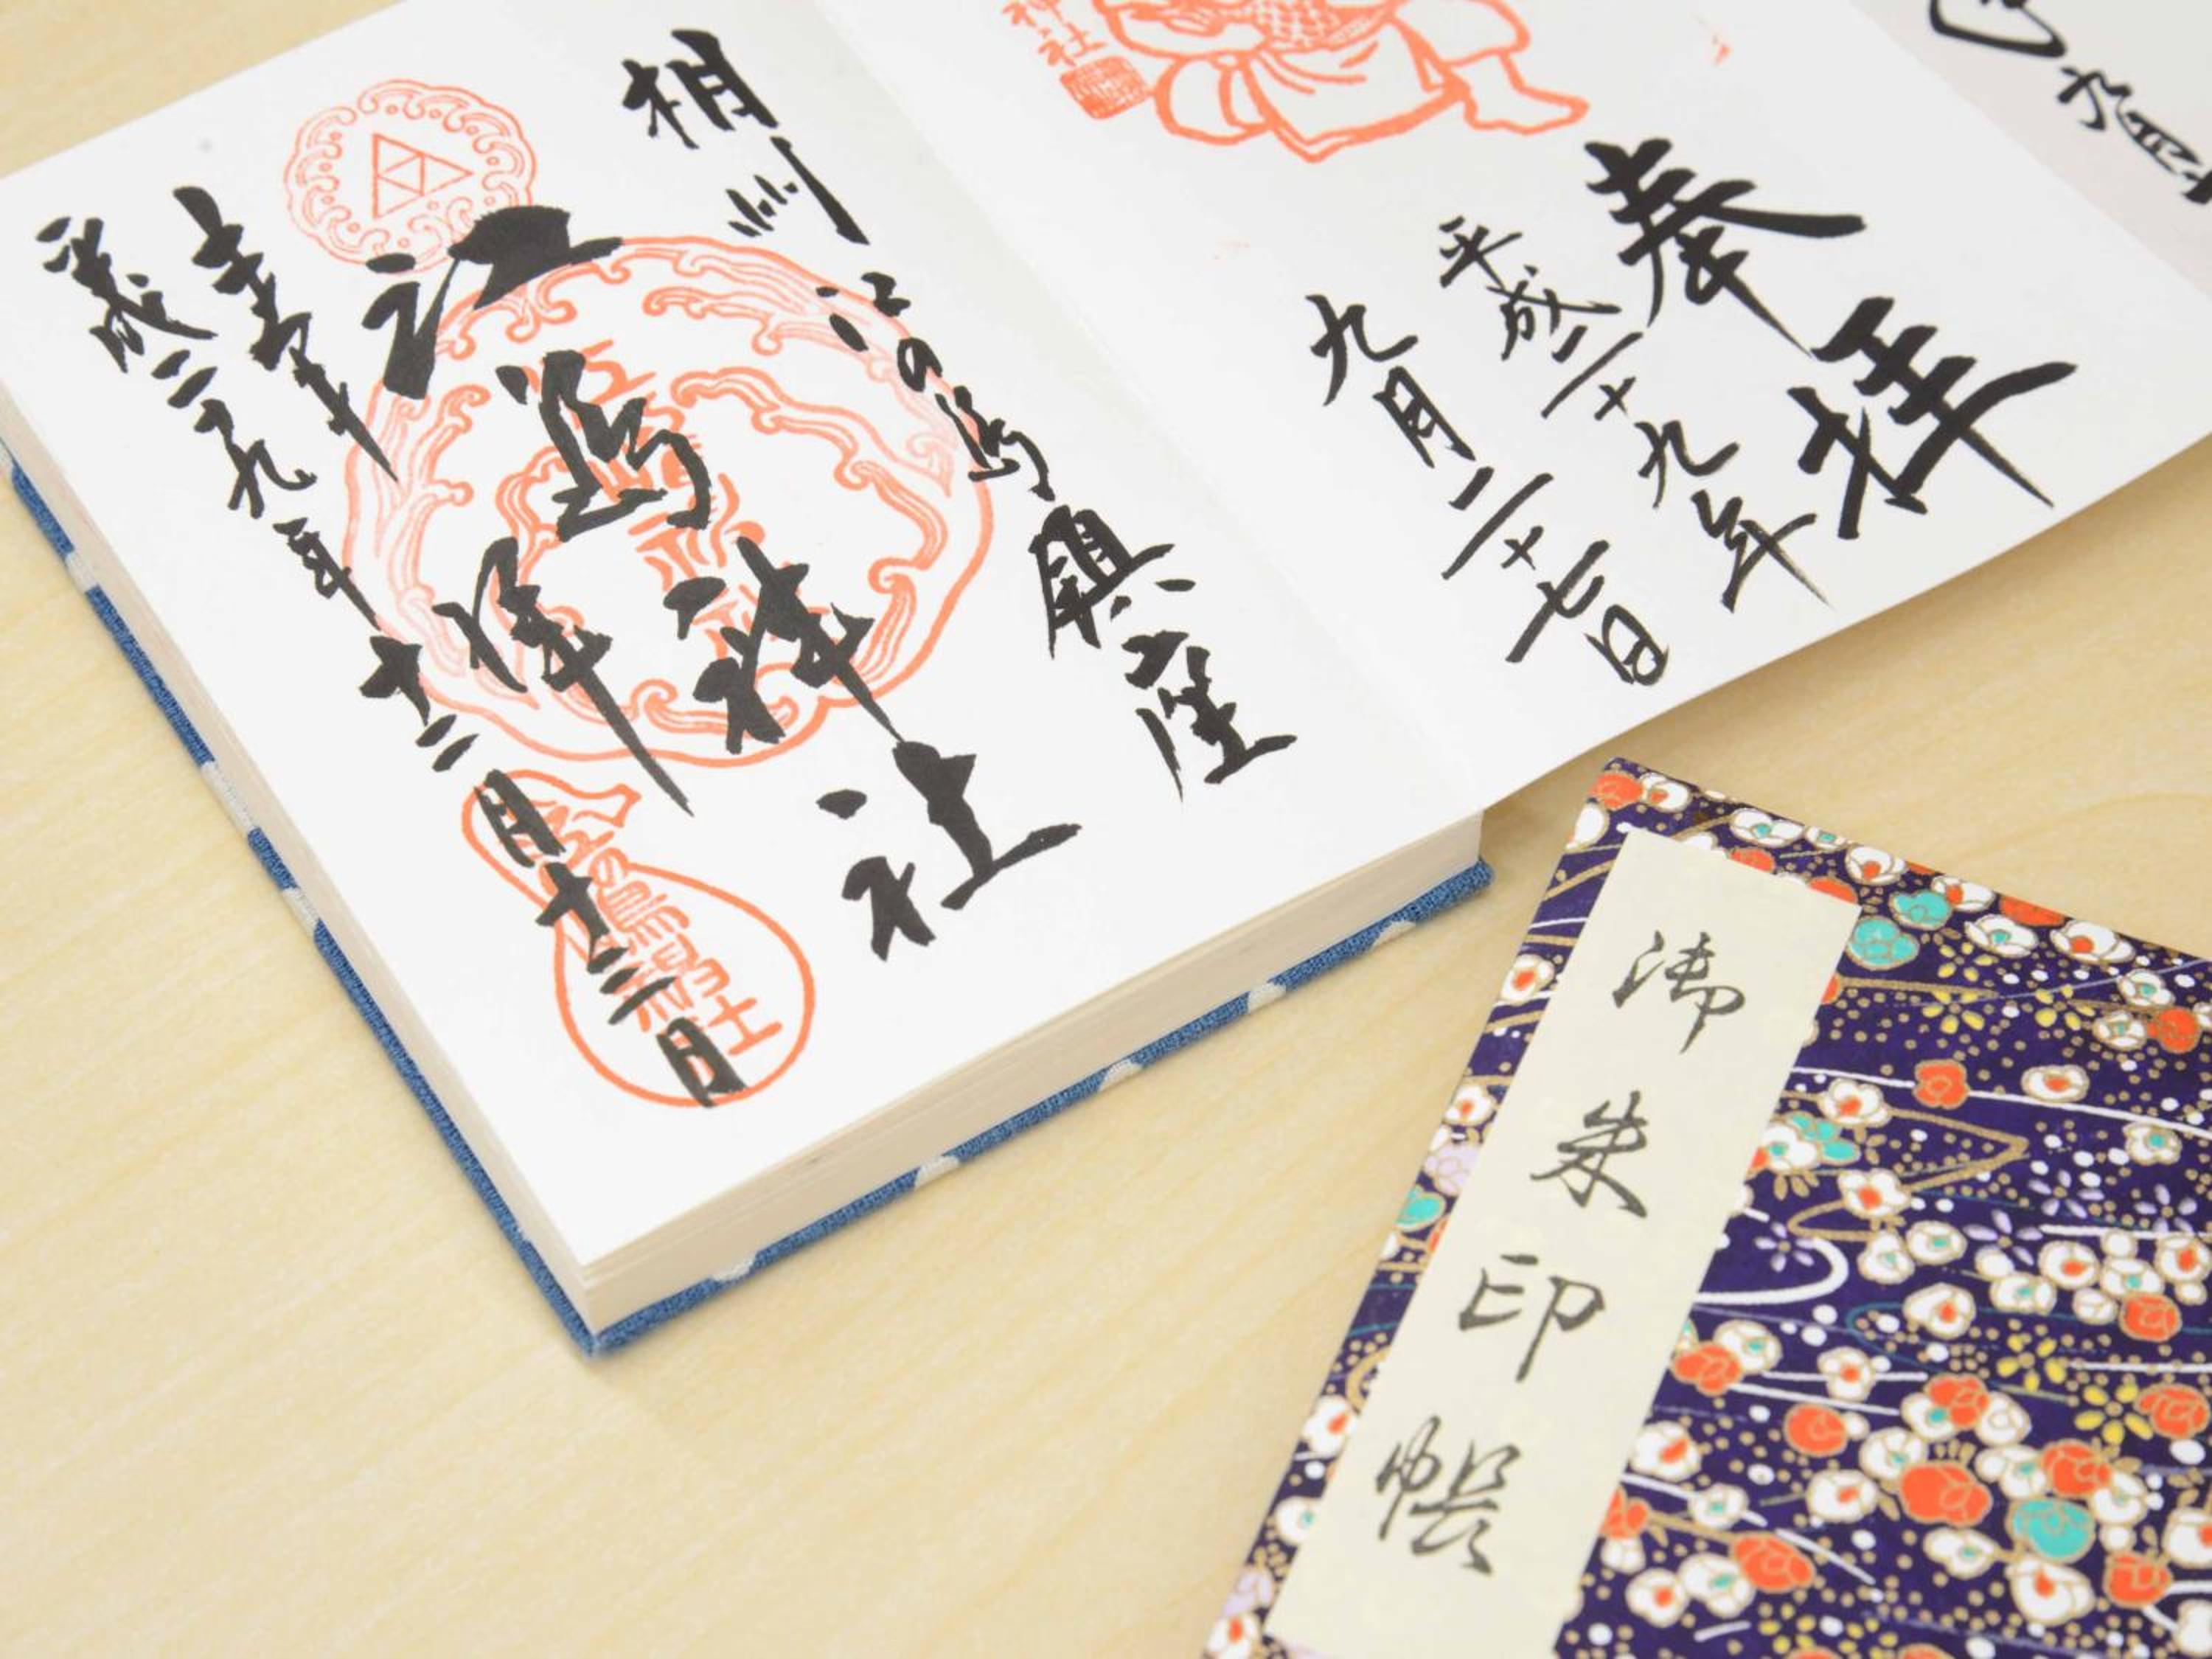 奉拝
平成二十九年
九月二十七日
神社
相州
江の島鎮座
江島神社
拝
平成二十九年十二月十三日
御朱印帳